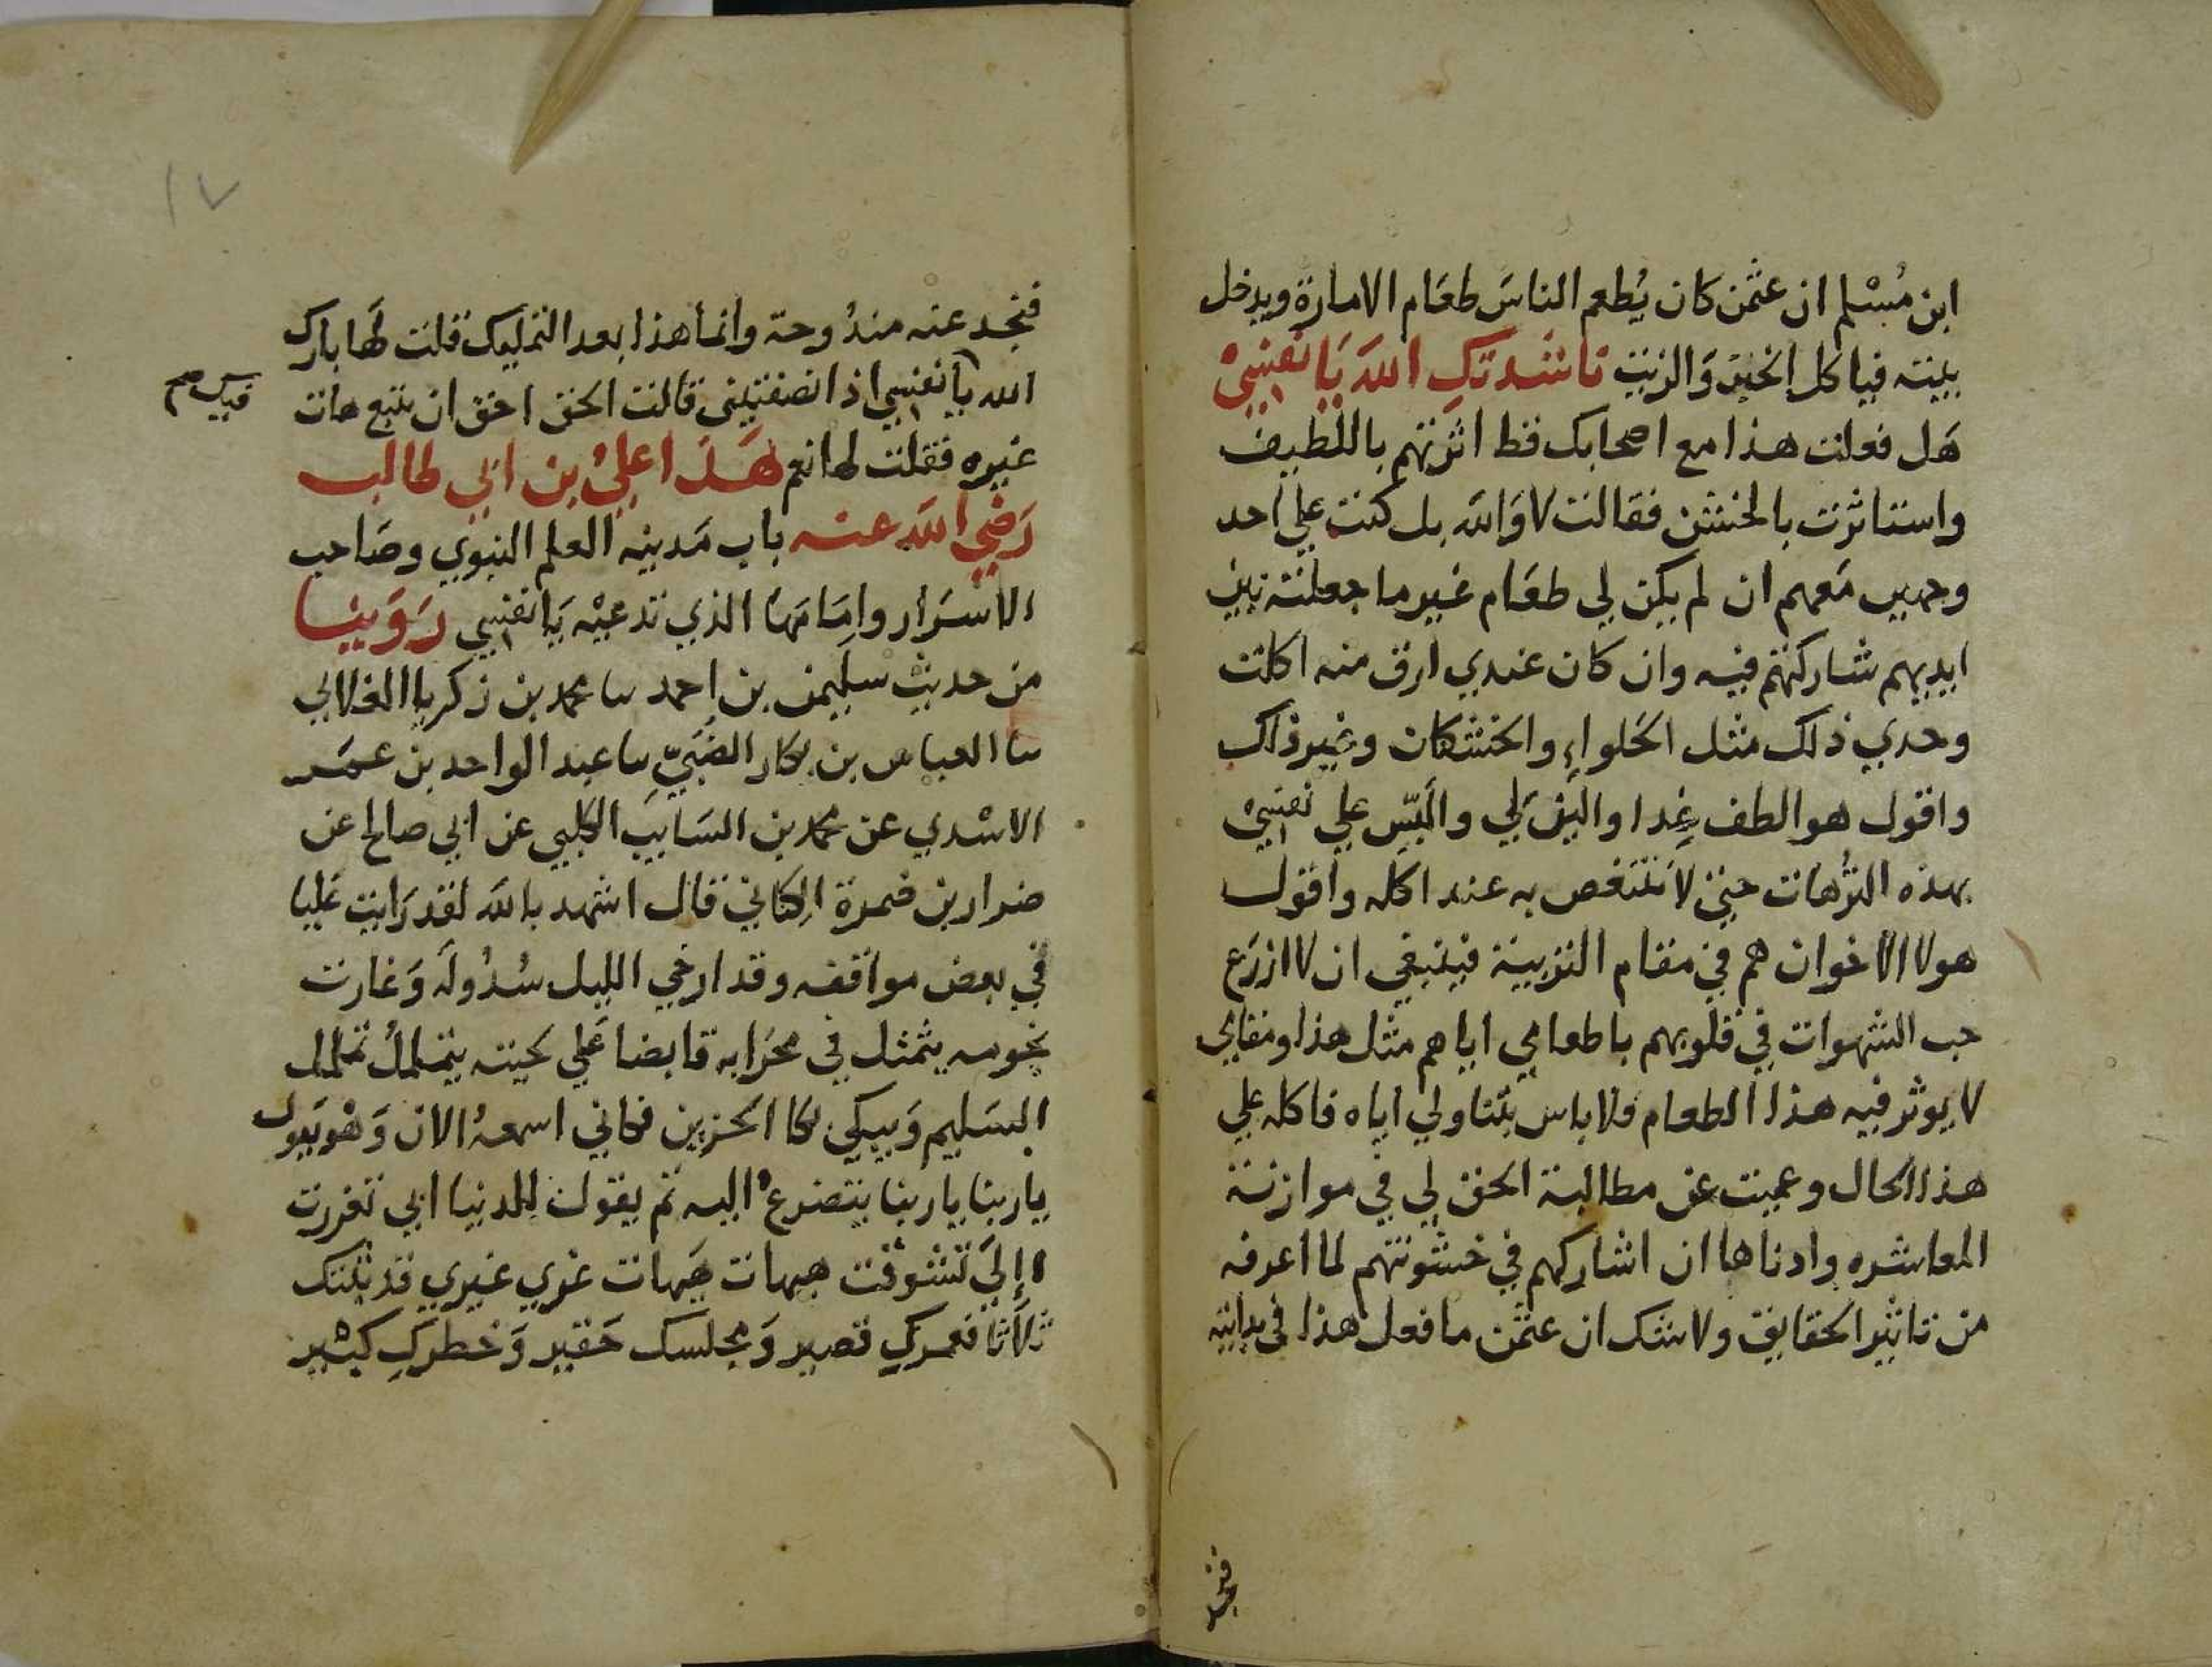 ابن مُسْلم ان عثمن كان يُطعم الناسَ طعَام الامارة ويدخل
بيته فياكل الخبز وَالزيت ناشدتكِ اللهَ يَا نفسِيْ
هَل فعلت هذا مع اصحابك قط اثرتهم باللطيف
واستاثرت بالخشن فقالت لا وَالله بل كنت علي احد
وجهين مَعهم ان لم يكن لي طعَام غير ما جعلته بين
ايديهم شاركتهم فيه وان كان عندي ارق منه اكلت
وحدي ذلك مثل الحَلواءِ والخشكان وغير ذلك
واقول هو الطف غِدا واليق لي والبّس علي نفسِيْ
بهذه التُرهات حتي لا تتنغص به عند اكله واقول
هولا الاخوان هم في مقام التربية فينبغي ان لا ازرَع
حب الشهوات في قلوبهم باطعامي اياهم مثل هذا ومقامي
لا يوثر فيه هذا الطعام فلا باس بتناولي اياه فاكله علي
هذا الحال وعميت عن مطالبة الحق لي في موازنة
المعاشره وادناها ان اشاركهم في خشونتهم لما اعرفه
من تاثير الحقايق ولا شك ان عثمن ما فعل هذا في بدايته
فتجد
١٧
فتجد عنه مندُوحة وانما هذا بعد التمليك قلت لهَا بارك
الله يا نفسِي اذ انصفتيني قالت الحق احق ان يتبع هات
فيك صح
غيره فقلت لها نعم هَذا عليُ بن ابي طالب
رَضي الله عنه باب مَدينه العلم النبوي وصَاحب
الاسْرَار وامَامهَا الذي تدعيْه يَا نفسِي رَوَينا
من حديث سليمن بن احمد نا محمد بن زكريا الغلابي
نا العباس بن بكار الضَبيّ نا عبد الواحد بن عمَر
الاسْدي عن محمد بن السَايب الكلبي عن ابي صالح عن
ضرار بن ضمرة الكناني قال اشهد بالله لقد رَايت عَليا
في بعض مواقفه وقد ارخي الليل سُدُوله وَغارت
نجومه يتمثل في محرَابه قابضا عَلي لحيته يتململُ تململ
السَليم وَيبكي بكا الحَزين فكاني اسمعهُ الان وَهْو يَقول
يا ربنا يا ربنا يتضرعُ اليه ثم يقول للدنيا ابي تغررت
اإليَ تشوقت هيهات هَيهات غري غيري قد بتتك
ثلاثا فعمركِ قصير وَمجلسك حَقير وَخطركِ كبير